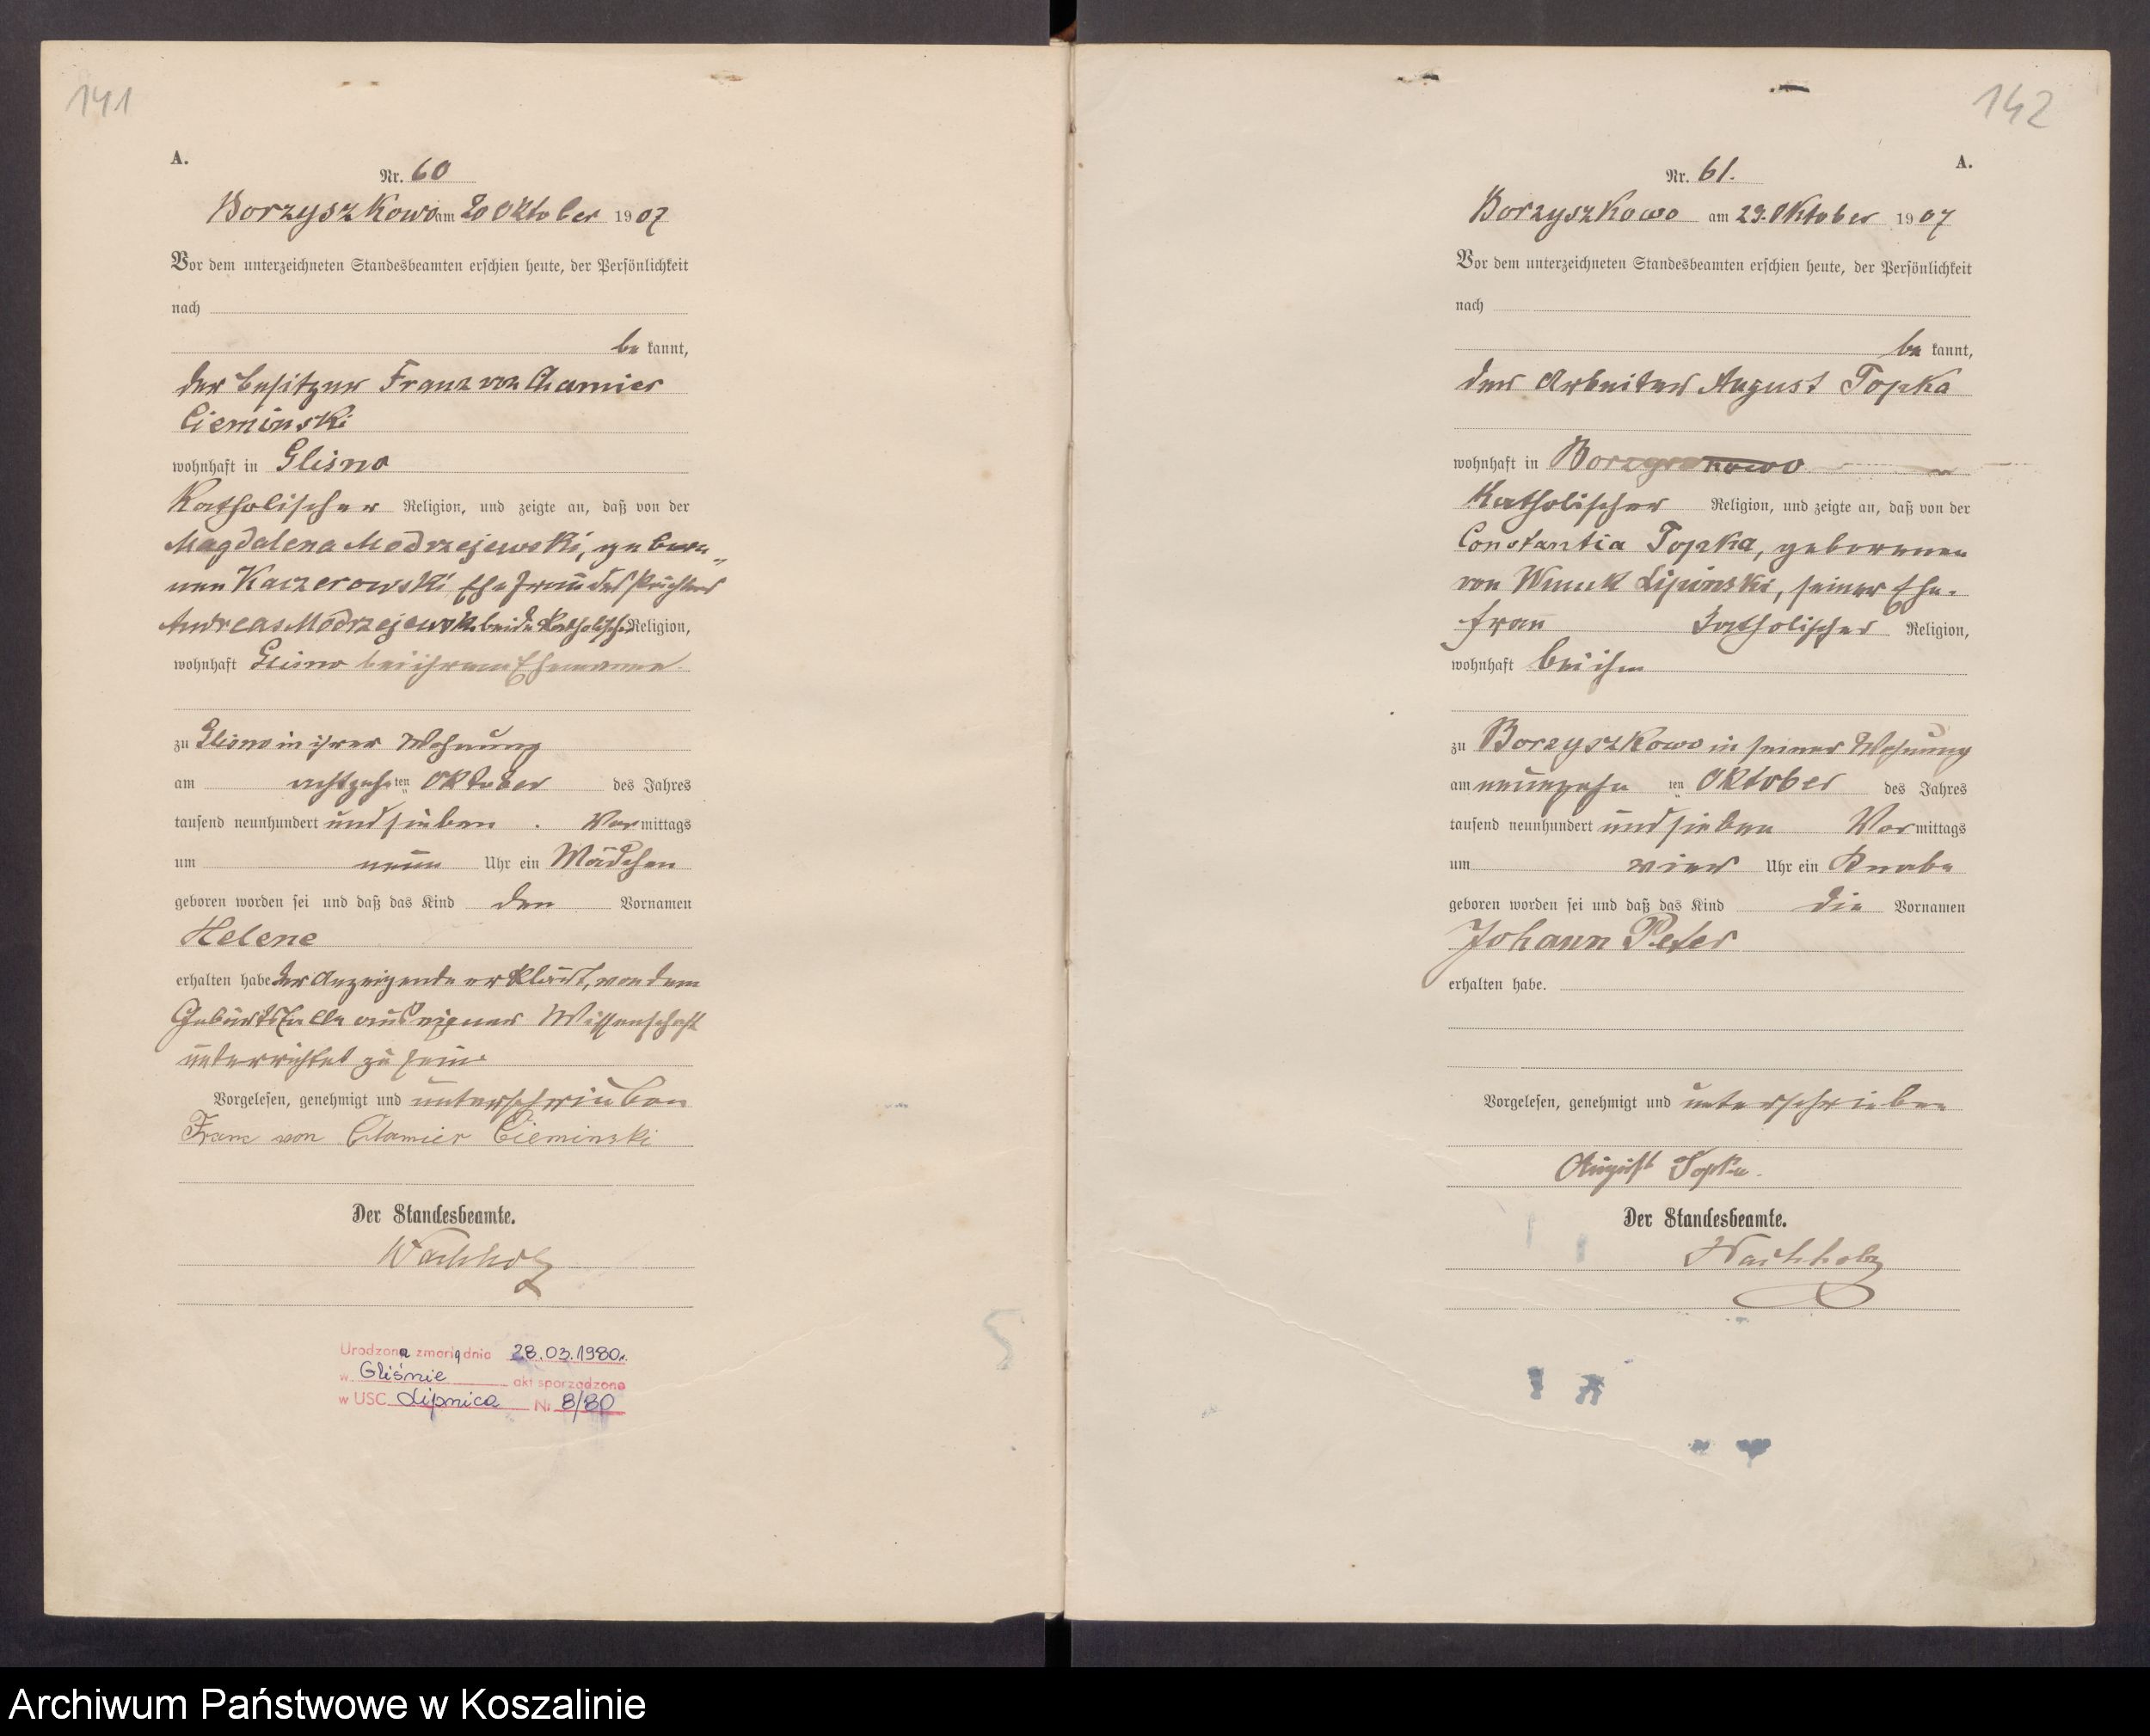 141
A.
Nr. 60
Borzyszkowo am 20 Oktober 1907
Vor dem unterzeichneten Standesbeamten erschien heute, der Persönlichkeit
nach
be kannt,
der Besitzer Franz von Chamier
Cieminski
wohnhaft in Glisno
Katholischer Religion, und zeigte an, daß von der
Magdalena Modrzejewski, gebore-
nen Kaczerowski Ehefrau des Pächters
Andreas Modrzejewski beide Katholischer Religion,
wohnhaft Glisno bei ihrem Ehemanne
zu Glisno in ihrer Wohnung
am achtzehnten Oktober des Jahres
tausend neunhundert und sieben Vormittags
um neun Uhr ein Mädchen
geboren worden sei und daß das Kind den Vornamen
Helene
erhalten habe der Anzeigende erklärt, von dem
Geburtsfalle aus eigener Wissenschaft
unterrichtet zu sein
Vorgelesen, genehmigt und unterschrieben
Franz von Chamier Cieminski
Der Standesbeamte.
Wachholz
Urodzona zmarła dnia 28.03.1980r.
w Gliśnie akt sporządzono
w USC Lipnica Nr 8/80
142
A.
Nr. 61.
Borzyszkowo am 29. Oktober 1907
Vor dem unterzeichneten Standesbeamten erschien heute, der Persönlichkeit
nach
be kannt,
der Arbeiter August Topka
wohnhaft in
Katholischer Religion, und zeigte an, daß von der
Constantia Topka, geborenen
von Wnuck Lipinski, seiner Ehe-
frau Katholischer Religion,
wohnhaft bei ihm
zu Borzyszkowo in seiner Wohnung
am neunzehnten Oktober des Jahres
tausend neunhundert und sieben Vormittags
um vier Uhr ein Knabe
geboren worden sei und daß das Kind die Vornamen
Johann Peter
erhalten habe.
Vorgelesen, genehmigt und unterschrieben
August Topka.
Der Standesbeamte.
Wachholz
Archiwum Państwowe w Koszalinie